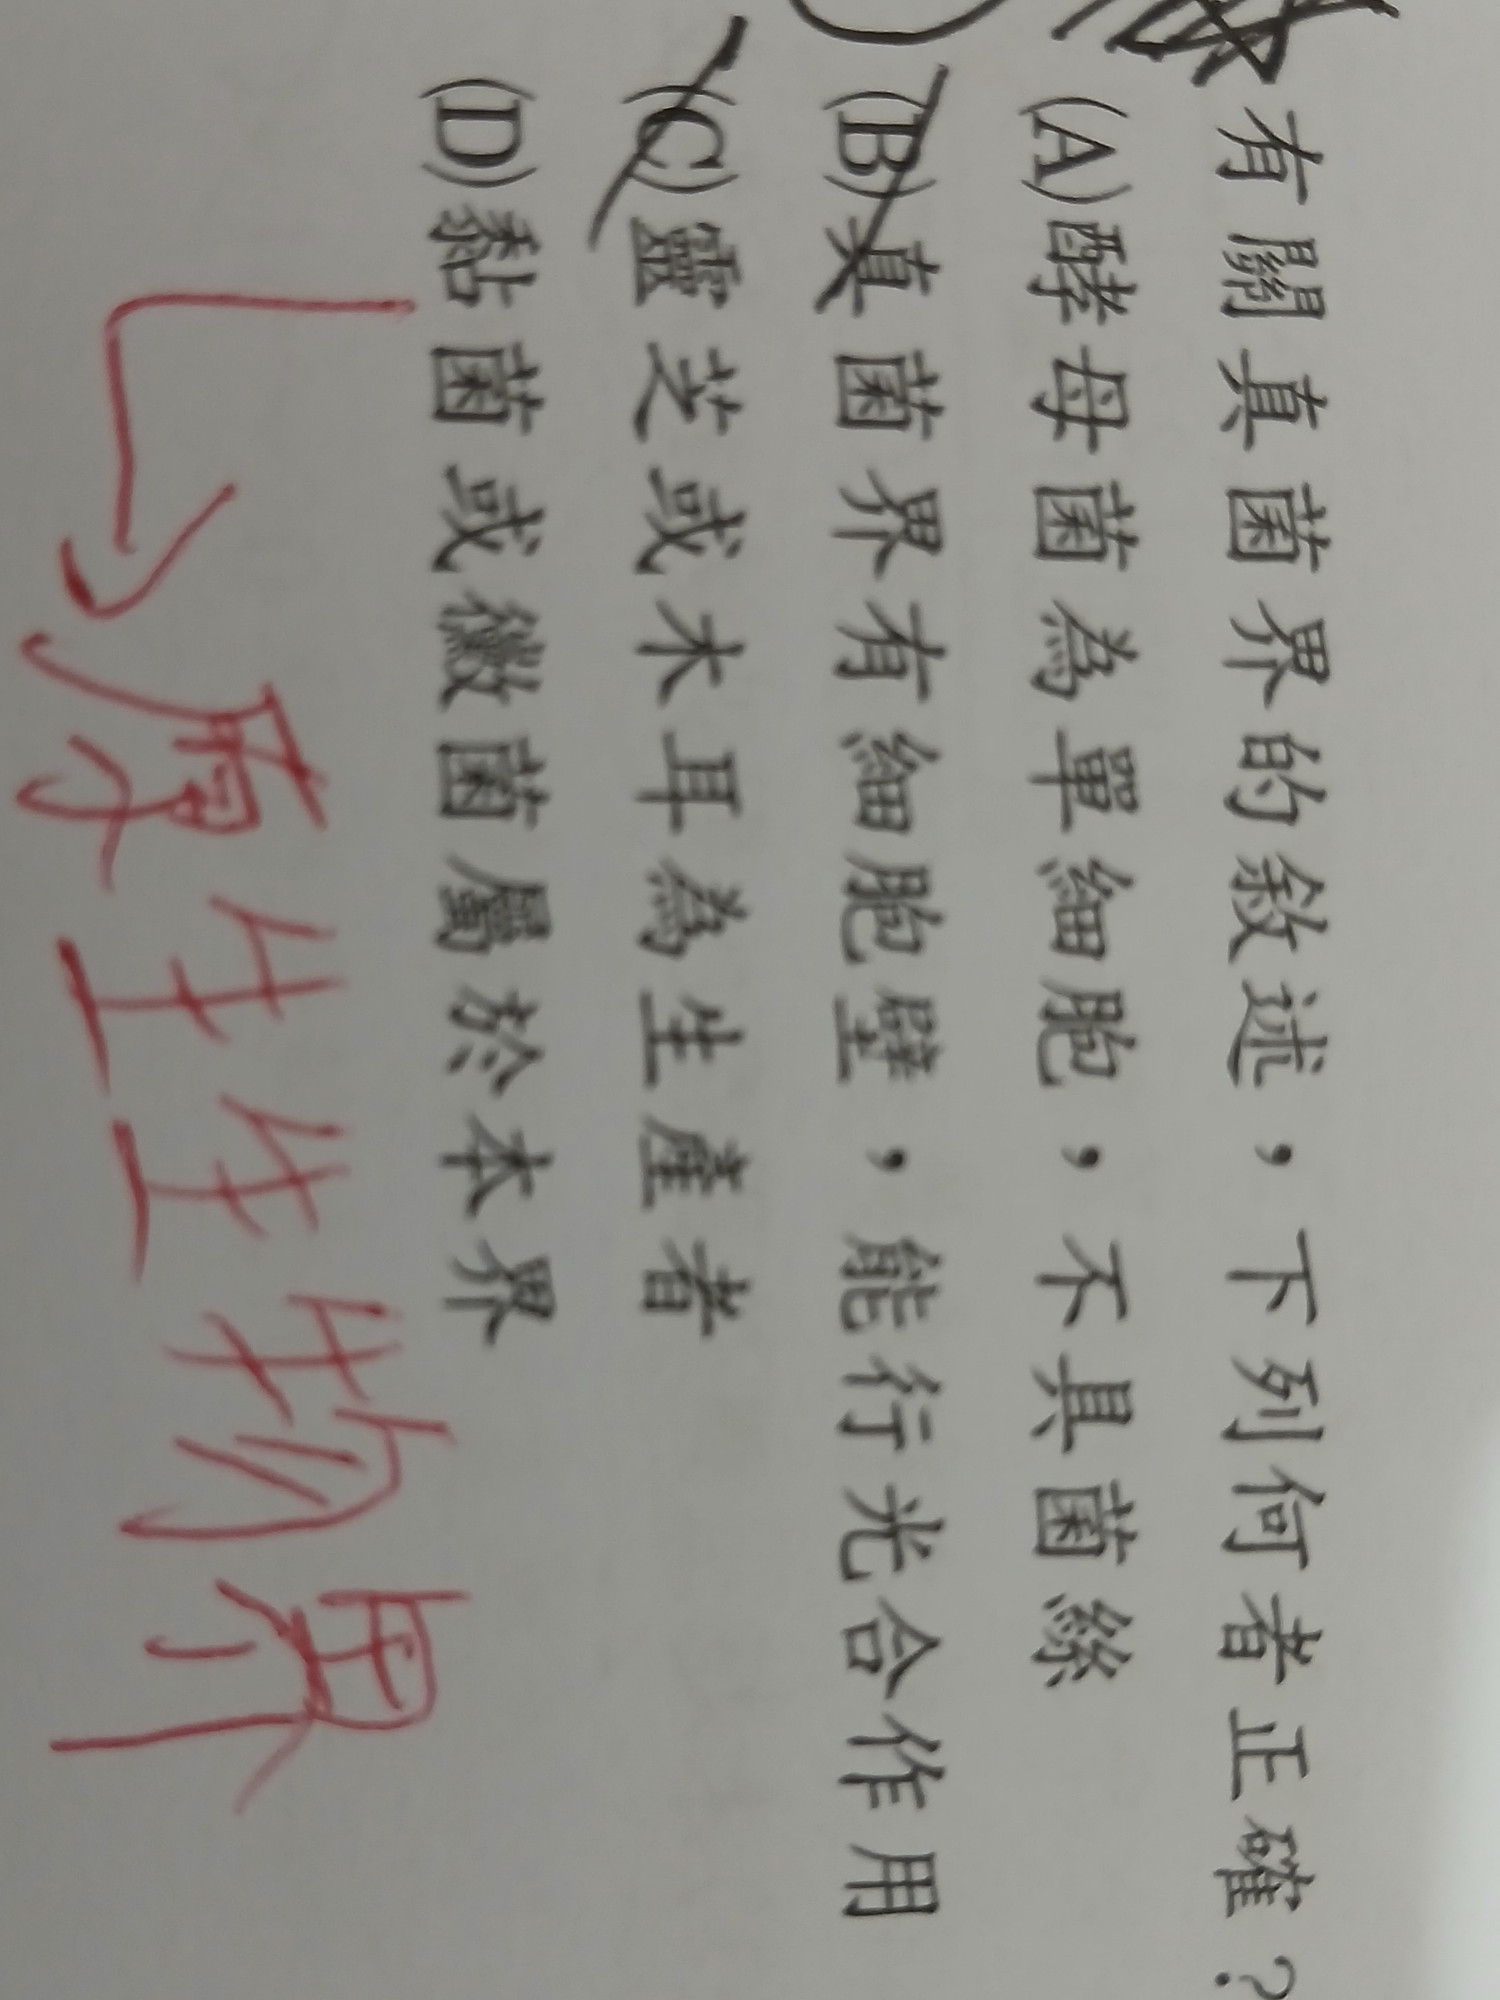 有關真菌界的敘述，下列何者正確？
(A)酵母菌為單細胞，不具菌絲
(B)真菌界有細胞壁，能行光合作用
(C)靈芝或木耳為生產者
(D)黏菌或黴菌屬於本界
原生生物界